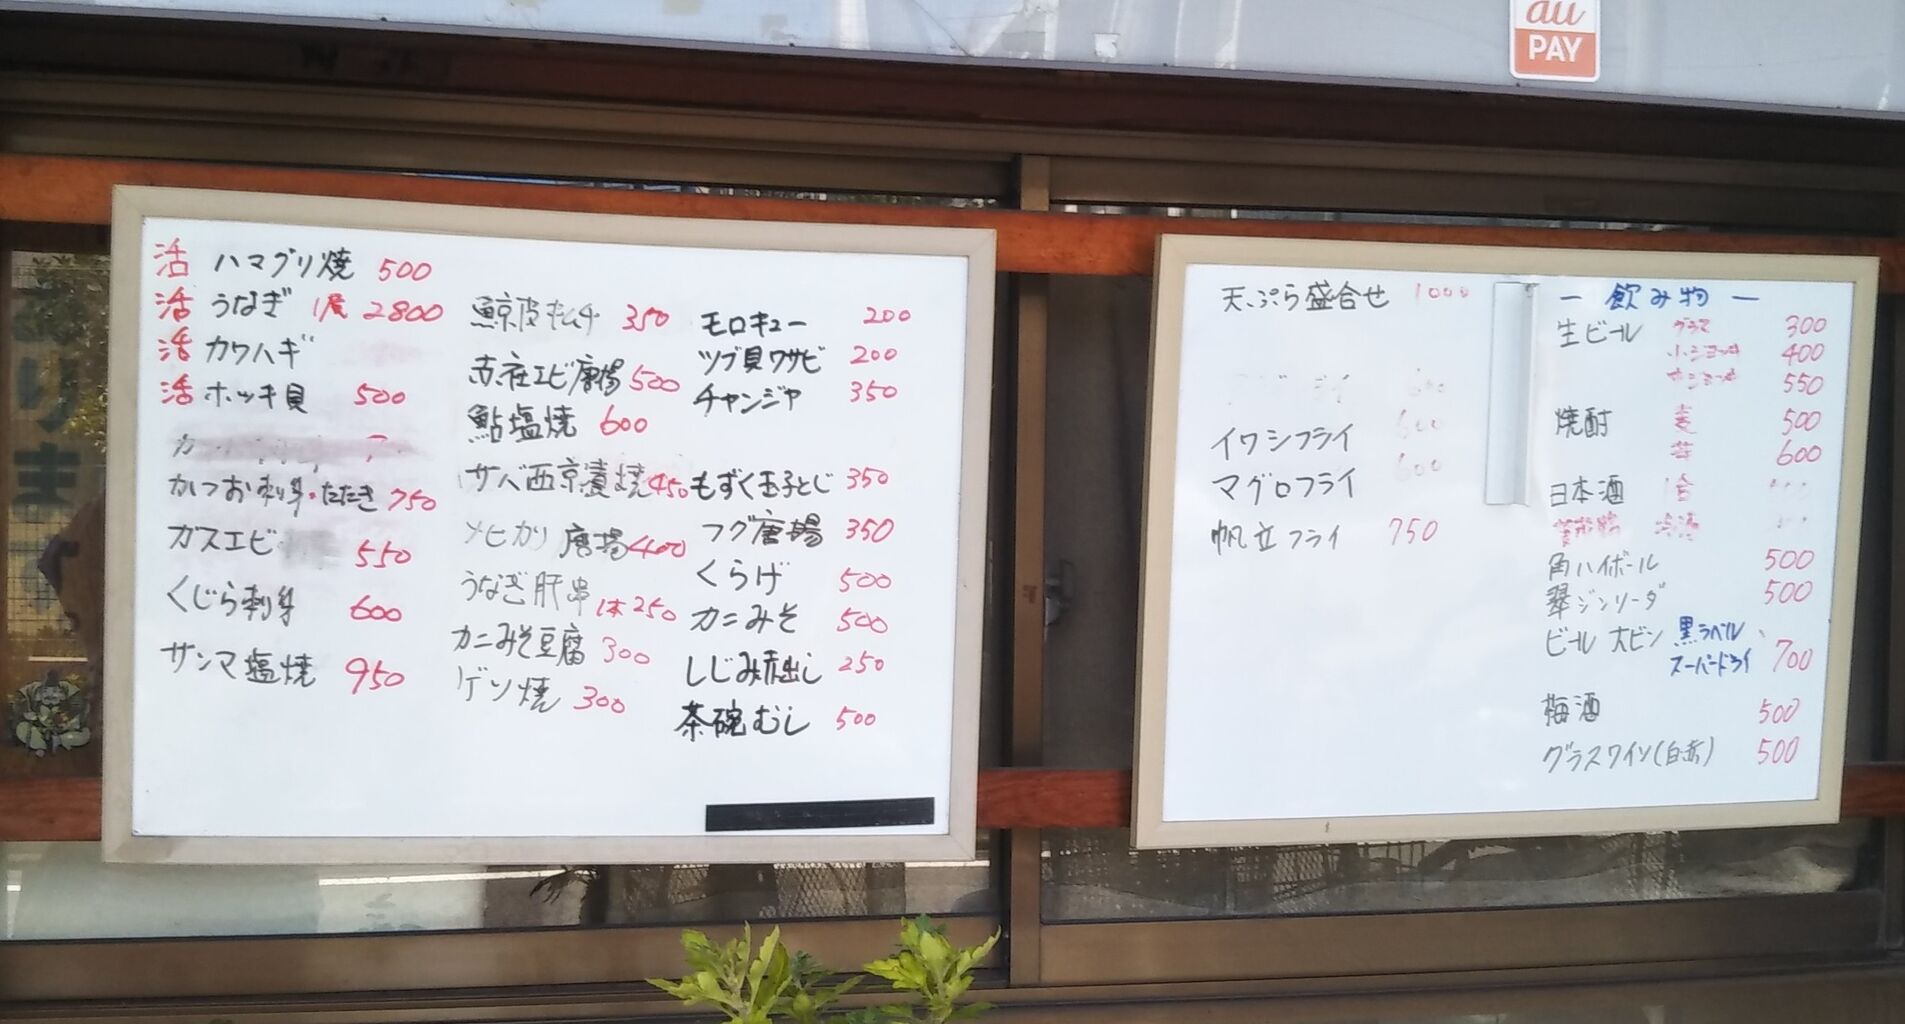 au
PAY
活 ハマグリ焼 500
活 うなぎ 1尾 2800
活 カワハギ
活 ホッキ貝 500
かつお刺身・たたき 750
ガスエビ 550
くじら刺身 600
サンマ塩焼 950
鯨皮キムチ 350
赤社エビ唐揚 500
鮎塩焼 600
サバ西京漬焼 450
メヒカリ 唐揚 400
うなぎ肝串 1本 250
カニみそ豆腐 300
ゲソ焼 300
モロキュー 200
ツブ貝ワサビ 200
チャンジャ 350
もずく玉子とじ 350
フグ唐揚 350
くらげ 500
カニみそ 500
しじみ赤出し 250
茶碗むし 500
天ぷら盛合せ 1000
イワシフライ 600
マグロフライ 600
帆立フライ 750
ー 飲み物 ー
生ビール グラス 300
小ジョッキ 400
中ジョッキ 550
焼酎 麦 500
芋 600
日本酒 1合
角ハイボール 500
翠ジンソーダ 500
ビール 大ビン 黒ラベル、
スーパードライ 700
梅酒 500
グラスワイン(白赤) 500